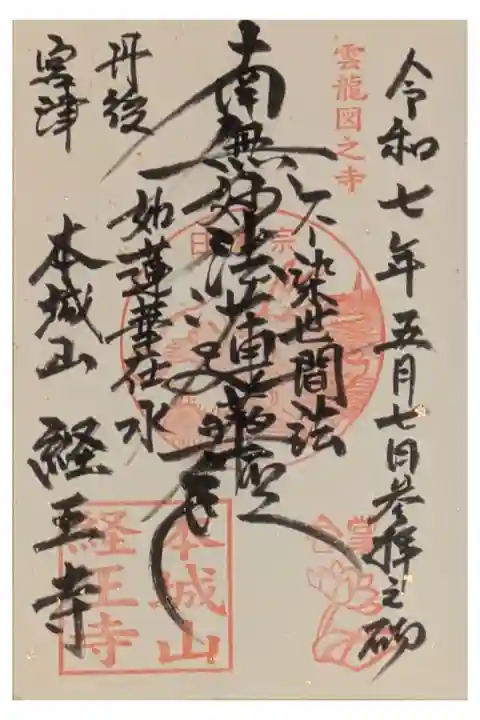 令和七年五月七日参拝之砌
雲龍図之寺
不染世間法
南無妙法蓮華経
如蓮華在水
丹後
宮津
本城山 経王寺
本城山
経王寺